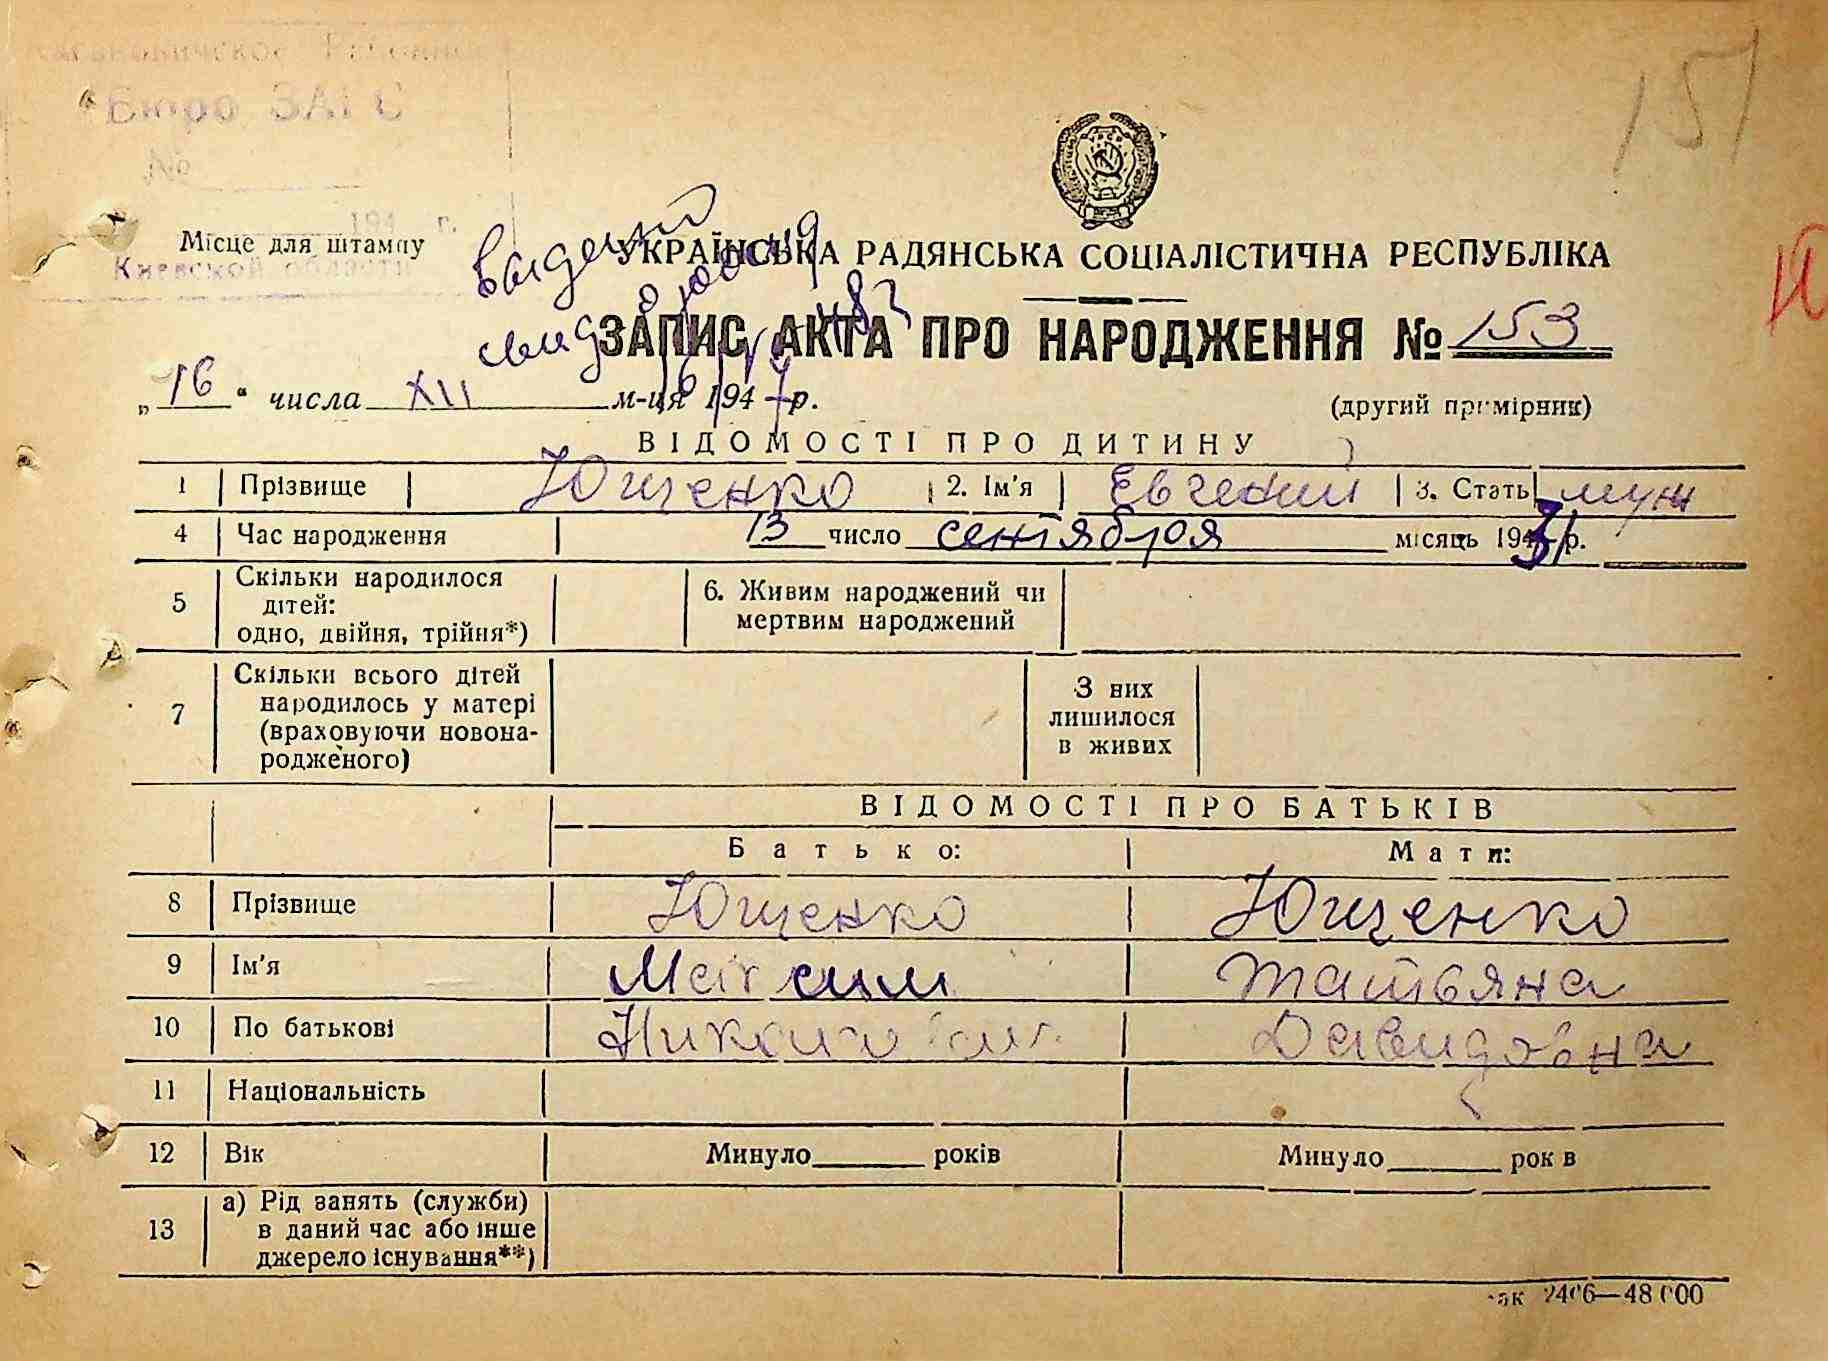 Бюро ЗАГС
№
194 г.
Місце для штампу
Киевской области
151
УКРАЇНСЬКА РАДЯНСЬКА СОЦІАЛІСТИЧНА РЕСПУБЛІКА
ЗАПИС АКТА ПРО НАРОДЖЕННЯ № 153
„16“ числа XII м-ця 1947 р.
(другий примірник)
ВІДОМОСТІ ПРО ДИТИНУ
1 Прізвище Ющенко 2. Ім'я Евгений 3. Стать муж
4 Час народження 13 число сентября місяць 1931 р.
5 Скільки народилося дітей: одно, двійня, трійня*) 6. Живим народжений чи мертвим народжений
7 Скільки всього дітей народилось у матері (враховуючи новонародженого) З них лишилося в живих
ВІДОМОСТІ ПРО БАТЬКІВ
Батько: Мати:
8 Прізвище Ющенко Ющенко
9 Ім'я Максим Татьяна
10 По батькові Давидовна
11 Національність
12 Вік Минуло років Минуло рок в
13 а) Рід занять (служби) в даний час або інше джерело існування**)
2406—48 000